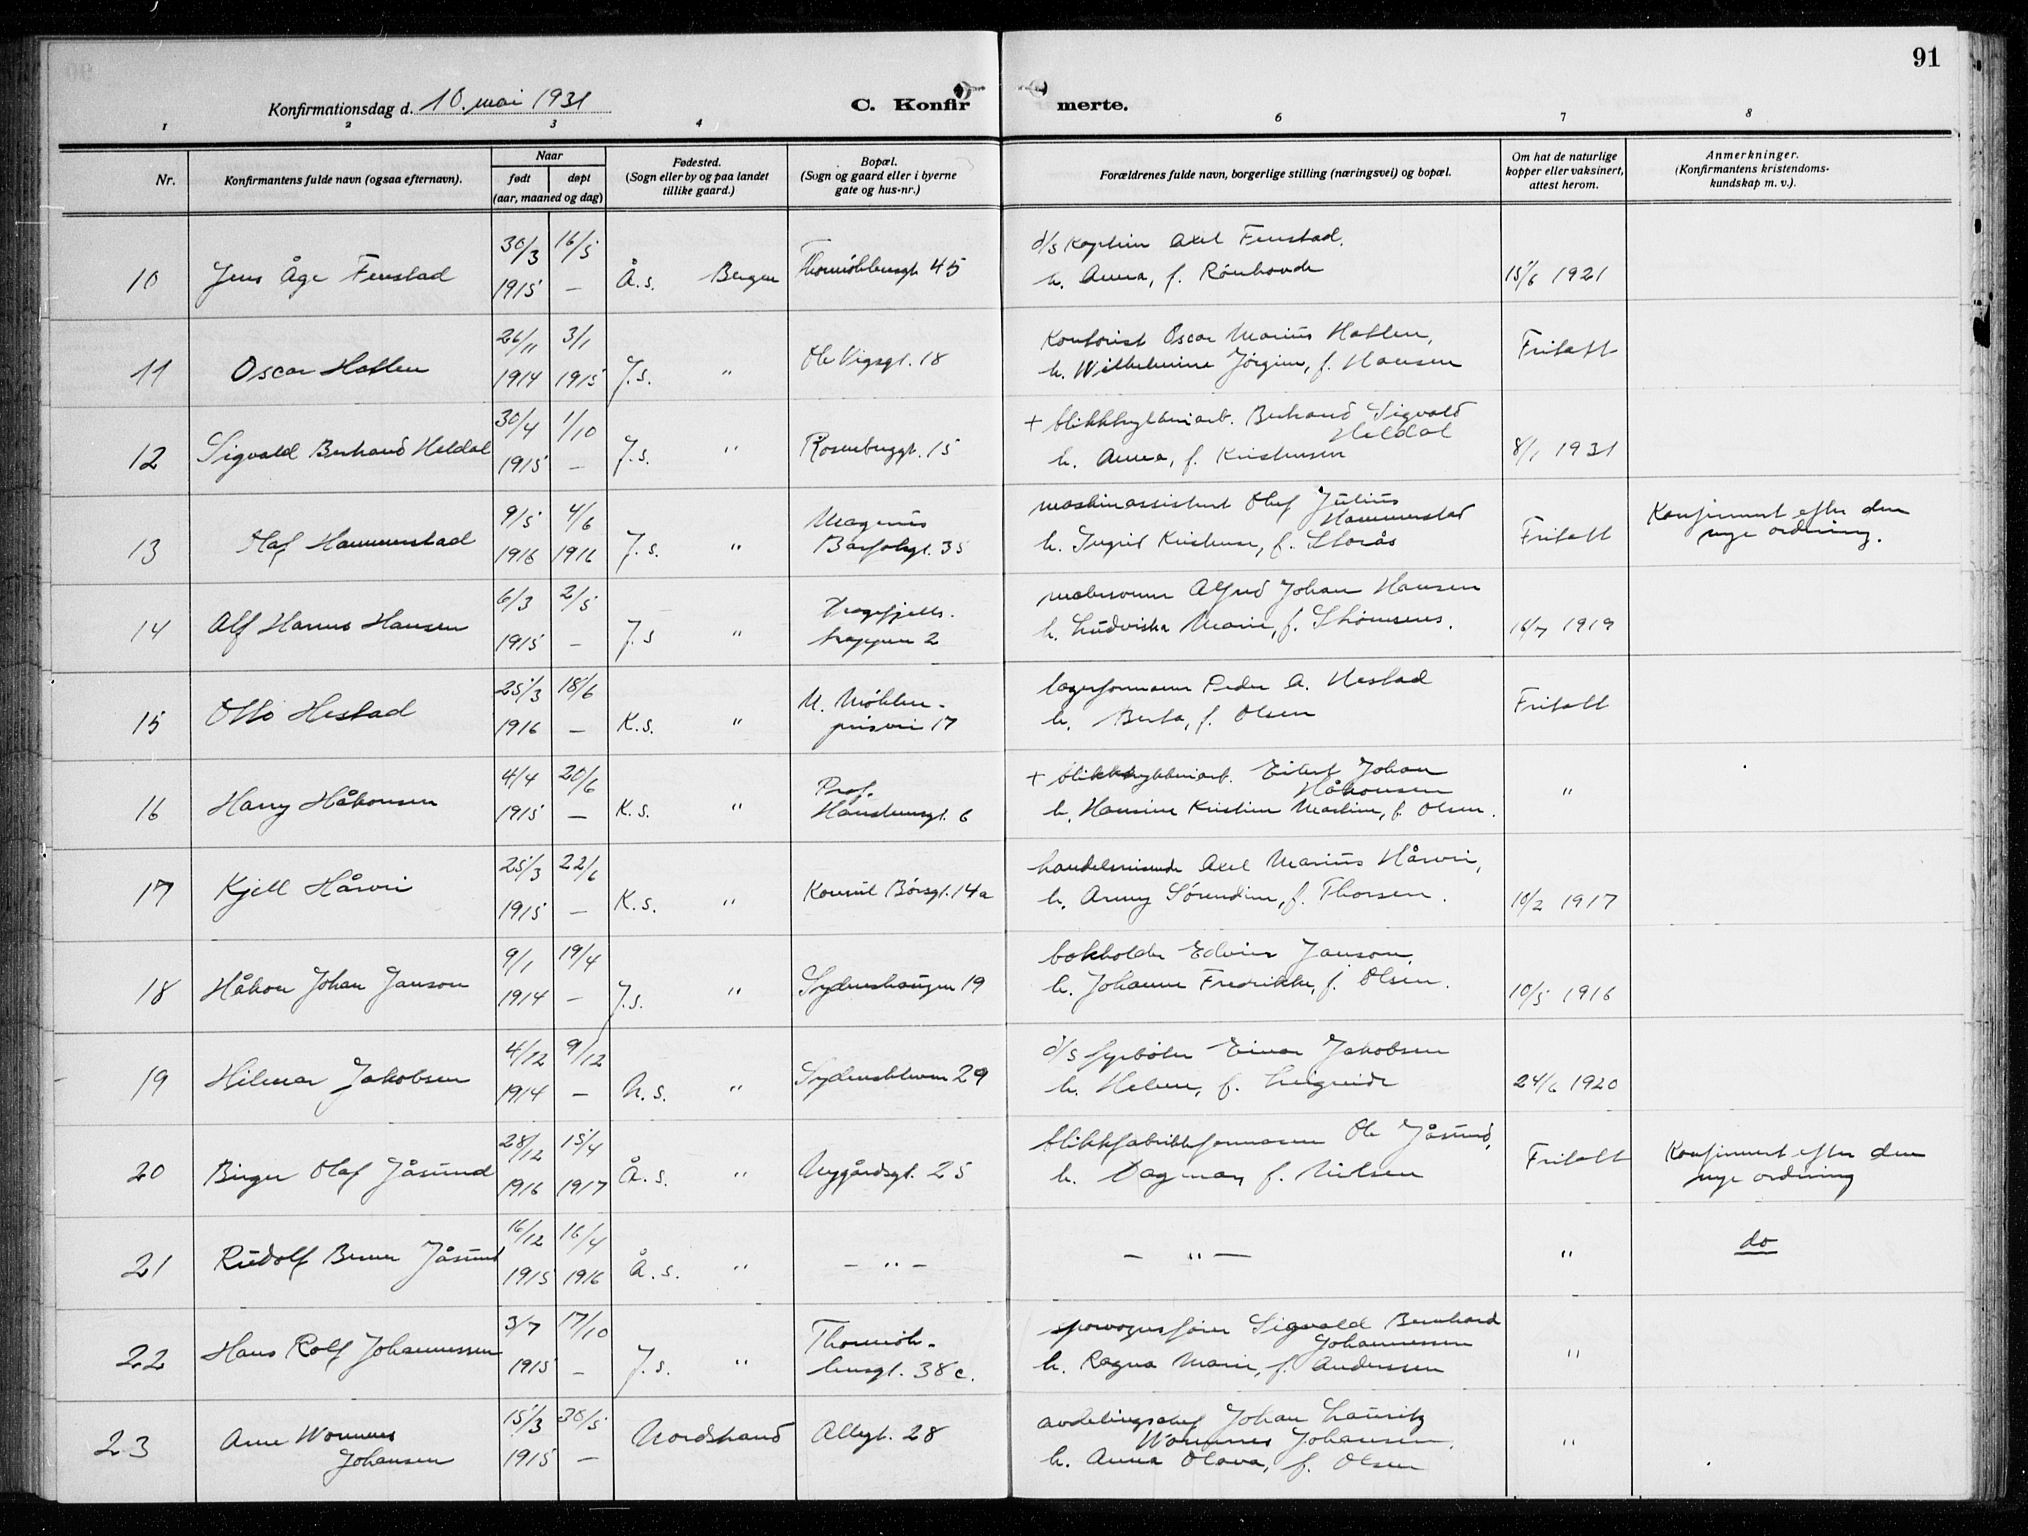 91
Konfirmationsdag d. 10. mai 1931
C. Konfirmerte.
1 2 3 4 6 7 8
Nr.
Konfirmantens fulde navn (ogsaa efternavn).
Naar
født døpt
(aar, maaned og dag)
Fødested.
(Sogn eller by og paa landet
tillike gaard.)
Bopæl.
(Sogn og gaard eller i byerne
gate og hus-nr.)
Forældrenes fulde navn, borgerlige stilling (næringsvei) og bopæl.
Om hat de naturlige
kopper eller vaksinert,
attest herom.
Anmerkninger.
(Konfirmantens kristendoms-
kundskap m. v.).
30/3 16/5 d/s kaptein Axel Fenstad,
10 Jens Åge Fenstad 1915 — Å. s. Bergen 45 h. Anna, f. 15/6 1921
26/11 3/1 Kontorist Oscar Marius Hatlen,
11 Oscar Hatlen 1914 1915 J. s. " Ole Vigsgt. 18 h. Wilhelmine Jørgine, f. Hansen Fritatt
30/4 1/10 + Berhand Sigvald
Heldal
12 Sigvald Berhand Heldal 1915 — J. s. " Rosenberggt. 15 h. Anna, f. Kristensen 8/1 1931
9/5 4/6 Magnus maskinassistent Olaf Julius
Hammerstad Konfirmert efter den
13 Olaf Hammerstad 1916 1916 J. s. " Barfotsgt. 35 h. Ingrid Kristense, f. Storås Fritatt nye ordning.
6/3 2/5 Dragefjells- Alfred Johan Hansen
14 Alf Hansen 1915 — J. s " trappen 2 h. Ludvikka Marie, f. 16/7 1919
25/3 18/6 N. Møhlen- lagerformann Peder A. Hestad
15 Otto Hestad 1916 — K. s. " prisvei 17 h. Berta, f. Olsen Fritatt
4/4 20/6 Prof. + Eilert Johan
Håkonsen
16 Harry Håkonsen 1915 — K. s. " Hansteensgt. 6 h. Hansine Kristine Martine, f. Olsen. "
25/3 22/6 handelsreisende Axel Marius Hårvei,
17 Kjell Hårvei 1915 — K. s. " Konsul Børsgt. 14a h. Anny Sørendine, f. Thorsen. 10/2 1917
9/1 19/4 bokholder Edvin Janson,
18 Håkon Johan Janson 1914 — J. s. " Sydneshaugen 19 h. Johanne Fredrikke, f. Olsen. 10/5 1916
4/12 9/12 d/s fyrbøter Einar Jakobsen
19 Hilmar Jakobsen 1914 — N. s. " 29 h. Helene, f. 24/6 1920
28/12 15/4 blikkfabrikkformann Ole Jåsund, Konfirmert efter den
20 Birger Olaf Jåsund 1916 1917 Å. s. " Nygårdsgt. 25 h. Dagmar, f. Nilsen Fritatt nye ordning
16/12 16/4
21 Rudolf Jåsund 1915 1916 Å. s. " — " — — " — " do
3/7 17/10 Thormøh- sporvognsfører Sigvald Bernhard
Johannessen
22 Hans Rolf Johannessen 1915 — J. s. " lensgt. 38 c. h. Ragna Marie, f. Anderssen "
15/3 30/5 avdelingschef Johan Lauritz
23 Arne Wormnes Johansen 1915 — Nordstrand Allegt. 28 Wormnes Johansen, "
h. Anna Olava, f. Olsen